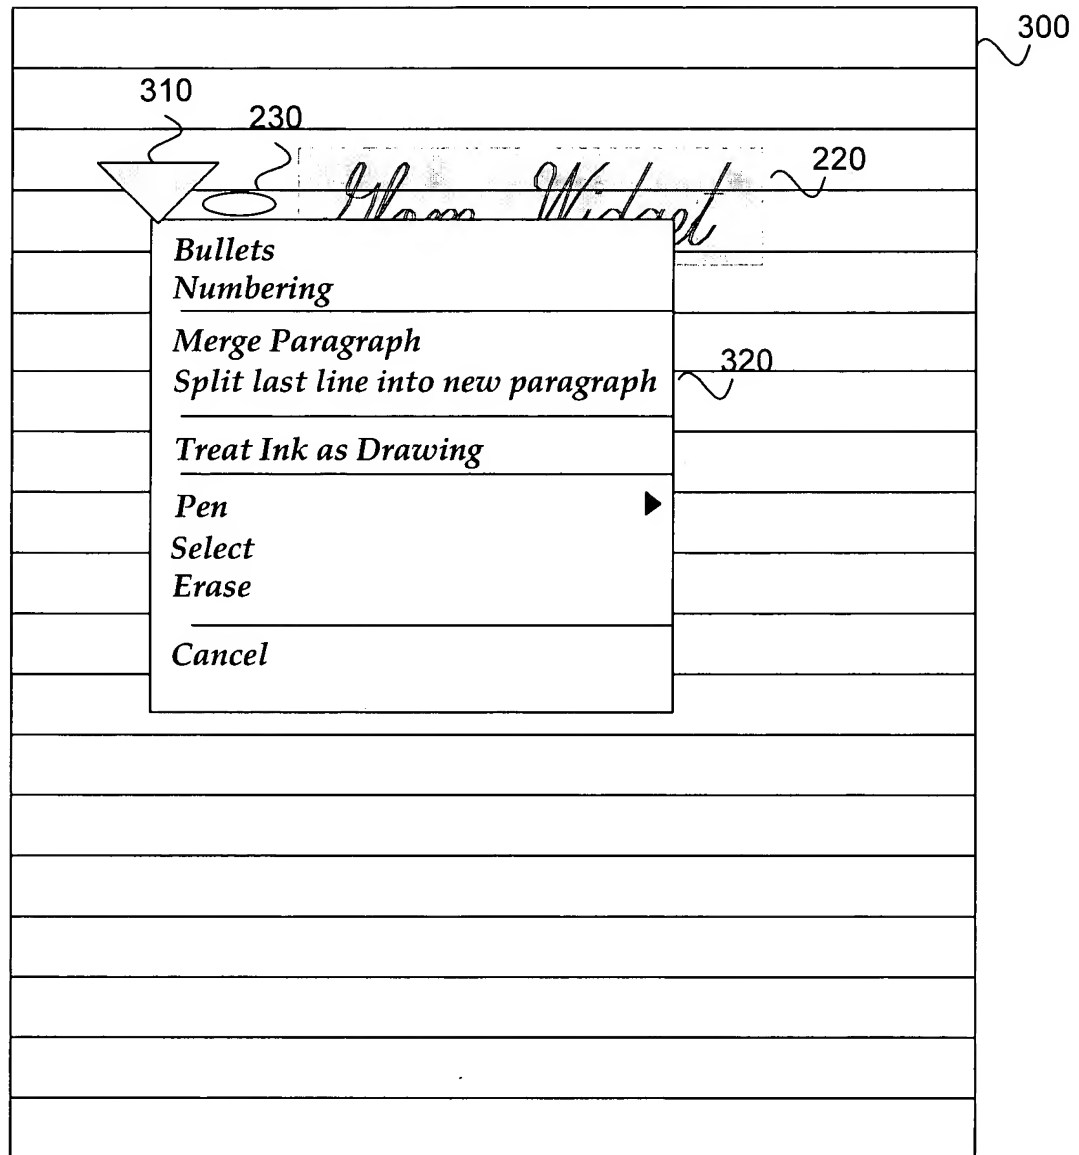 300
310
230
220
Glom Widget
Bullets
Numbering
Merge Paragraph
320
Split last line into new paragraph
Treat Ink as Drawing
Pen
Select
Erase
Cancel